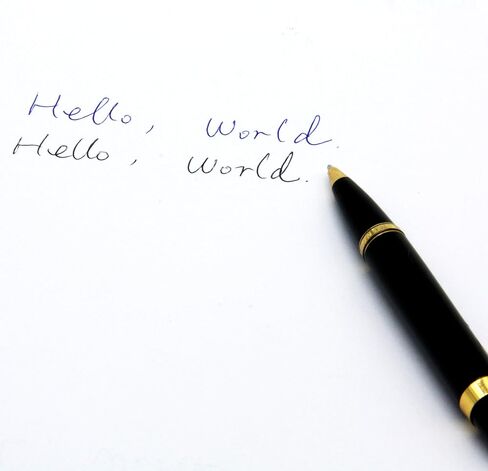 Hello, World.
Hello, World.